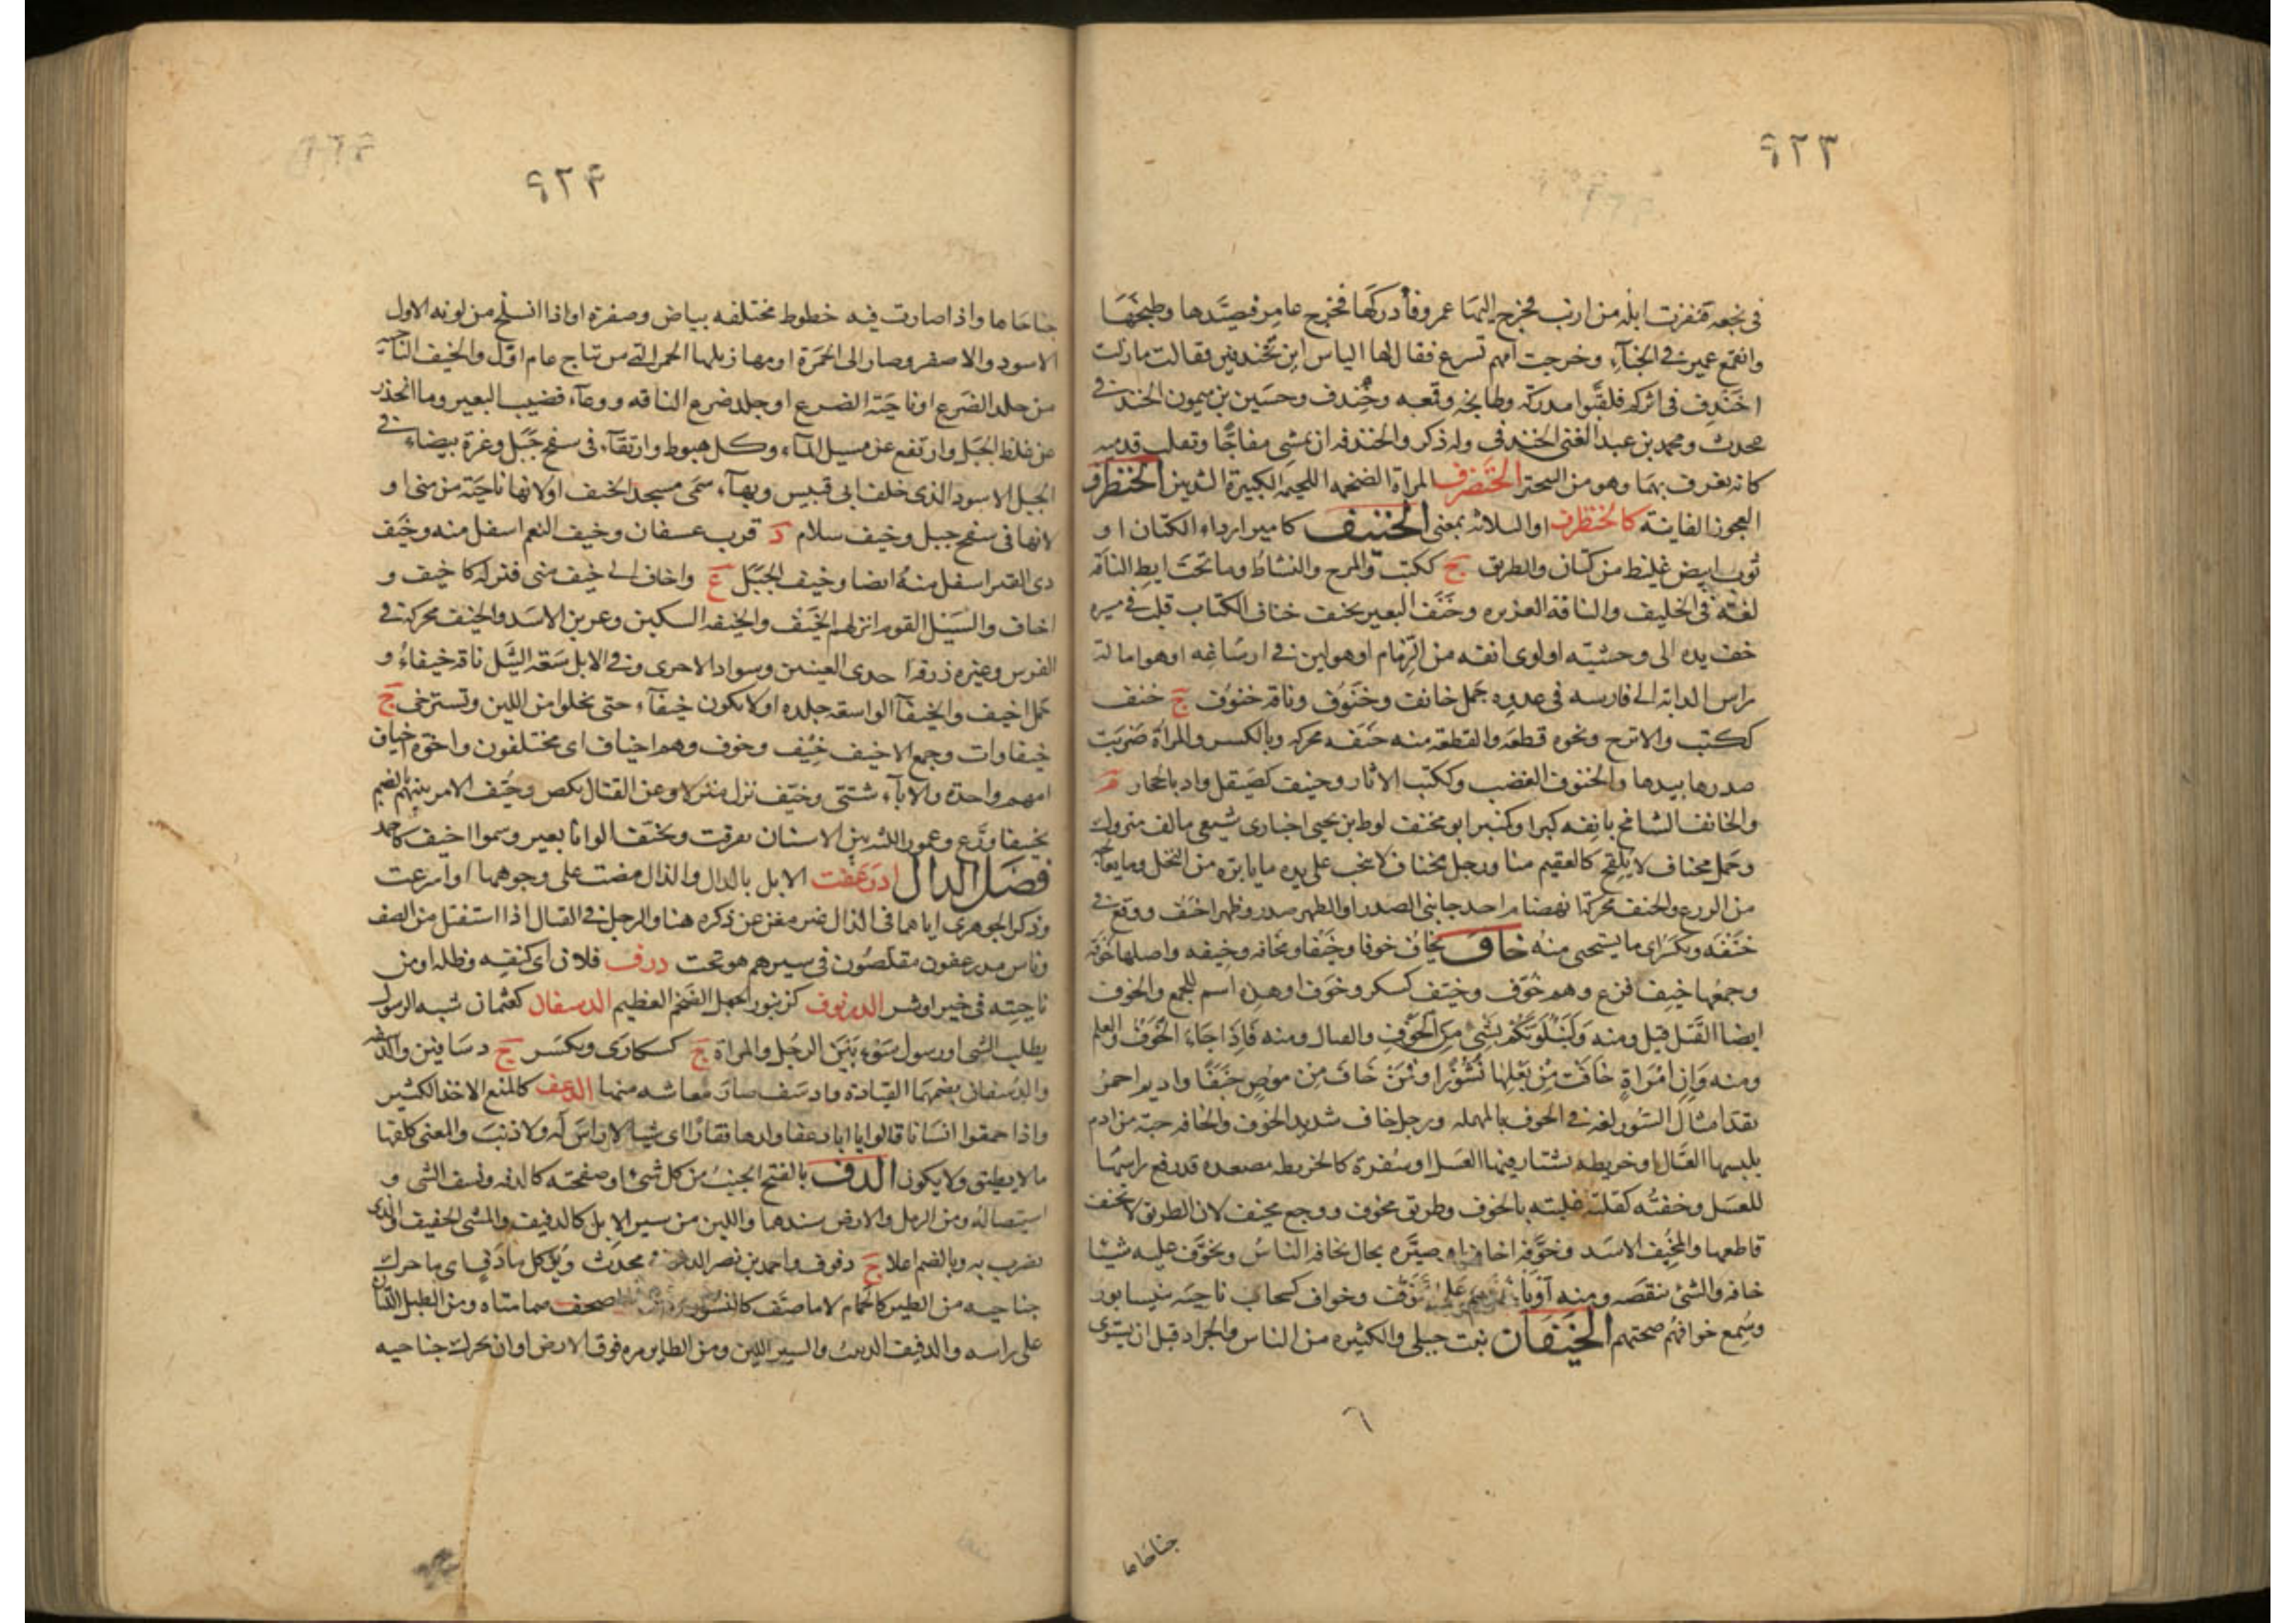 ٩٢٣
فى نجعة فنفرت ابله من ارنب فخرج اليها عمرو فأدركها فخرج عامر فتصيدها وطبخها
وانقمع عمير فى الخبآء وخرجت امهم تسرع فقال لها الياس اين تخندفين فقالت مازلت
اخندف فى اثركم فلقبوا مدركة وطابخة وقمعه وخندف وحسين بن ميمون الخندفى
محدث ومحمد بن عبد الغنى الخندفى وله ذكر والخندفه ان يمشى مفاجًا ويقلب قدميه
كانه يغرف بهما وهو من التبختر الخنضرف المراة الضخمه اللحيمه الكبيرة الثديين الخنظرف
العجوز الفانية كالخنظرف او الثلاثه بمعنى الخنيف كامير ارداء الكتان او
ثوب ابيض غليظ من كتان والطريق ج ككتب والمرح والنشاط وما تحت ابط الناقة
لغة فى الخليف والناقة الغزيره وخنف البعير يخنف خناف الكتاب قلب فى سيره
خف يده الى وحشيه او لوى انفه من الزمام او هو لين فى ارساغه او هو امالة
راس الدابة الى فارسه فى عدوه جمل خانف وخنوف وناقه خنوف ج خنف
ككتب والاترج ونحوه قطعه والقطعة منه خنفه محركه وبالكسر والمراة ضربت
صدرها بيدها والخنوف الغضب وككتب الاثار وخينف كصيقل واد بالحجاز
والخانف الشامخ بانفه كبرا وكمنبر ابو مخنف لوط بن يحيى اخبارى شيعى تالف متروك
وجمل مخناف لا يلقح كالعقيم منا ورجل مخناف لا ينجب على يده مايابره من النخل وما يعالجه
من الزرع والخنف محركة انهضام احد جانبى الصدر او الظهر صدر وظهر اخنف ووقع فى
خنفه ويكسر اى ما يستحى منه خاف يخاف خوفا وخيفا ومخافه وخيفه واصلها خوفة
وجمعها خيف فزع وهم خوف وخيف كسكر وخوف او هذه اسم للجمع والخوف
ايضا القتل قيل ومنه وَلَنَبْلُوَنَّكُمْ بِشَىْءٍ مِنَ الخَوْفِ والقتال ومنه فَاِذَا جَاءَ الخَوْفُ والعلم
ومنه وَاِنِ امْرَاةٌ خَافَتْ مِنْ بَعْلِهَا نُشُوْزًا وفَمَنْ خَافَ مِن موصٍ جَنَفًا واديم احمر
يقد امثال السيور لغة فى الحوف بالمهمله ورجل خاف شديد الخوف والخافه جبة من ادم
يلبسها العسال او خريطه يشتار فيها العسل او سفرة كالخريطه مصعده قد رفع راسها
للعسل وخفته كقلته غلبته بالخوف وطريق مخوف ووجع مخيف لان الطريق لا تخيف
قاطعها والمخيف الاسد وخوفه اخافه او صيره بحال يخافه الناس وتخوف عليه شيئا
خافه والشئ تنقصه ومنه أويأخذهم على تخوف وخواف كسحاب ناحية بنيسابور
وسمع خوافهم ضجتهم الخيفان نبت جبلى والكثيره من الناس والجراد قبل ان يستوى
٦
جناحاها
٩٢٤
جناحاها واذا صارت فيه خطوط مختلفه بياض وصفرة او اذا انسلخ من لونه الاول
الاسود والاصفر وصار الى الحمرة او مهازيلها الحمر التى من نتاج عام اول والخيف الناحيه
من جلد الضرع او ناحية الضرع او جلد ضرع الناقه ووعآء قضيب البعير وما انحدر
عن غلظ الجبل وارتفع عن مسيل المآء وكل هبوط وارتقآء فى سفح جبل وغرة بيضاء فى
الجبل الاسود الذى خلف ابى قبيس وبهآء سمى مسجد الخيف او لانها ناحية من منى او
لانها فى سفح جبل وخيف سلام د قرب عسفان وخيف النعم اسفل منه وخيف
ذى القبر اسفل منه ايضا وخيف الجبل ع واخاف الى خيف منى فنزله كاخيف و
اخاف والسيل القوم انزلهم الخيف والخيفه السكين وعرين الاسد والخيف محركة فى
الفرس وغيره زرقة احدى العينين وسواد الاخرى وفى الابل سعة الثيل ناقة خيفاء و
جمل اخيف والخيفآء الواسعة جلده او لا يكون خيفآء حتى يخلوا من اللبن وتسترخى ج
خيفاوات وجمع الاخيف خيف وخوف وهم اخياف اى مختلفون واخوة اخياف
امهم واحدة والآبآء شتى وخيف نزل منزلا وعن القتال نكص وخيف الامر بينهم بالضم
تخييفا وزع وعمور اللثه بين الاسنان تفرقت وتخيف الوانا تغير وسموا اخيف كاحمد
فصل الدال ادرعفت الابل بالدال والذال مضت على وجوهها او اسرعت
وذكر الجوهرى اياهما فى الذال غير مغن عن ذكره هنا والرجل فى القتال اذا استقتل من الصف
وناس مدرعفون مقلصون فى سيرهم هو تحت درف فلان اى كنفه وظله او من
ناحيته فى خير او شر الدرنوف كزنبور الجمل الضخم العظيم الدسفان كعثمان شبه الرسول
يطلب الشى او رسول سوء بين الرجل والمراة ج كسكارى ويكسر ج دسافين والدسفه
والدسفان بضمهما القيادة وادسف صار معاشه منها الدعف كالمنع الاخذ الكثير
واذا حمقوا انسانا قالوا يا ابا دغفا ولدها فقارا اى شيا لا راس له ولا ذنب والمعنى كلفها
ما لا يطيق ولا يكون الدف بالفتح الجنب من كل شئ او صفحته كالدفه ونسف الشى و
استيصاله ومن الرمل والارض سندهما واللين من سير الابل كالدفيف والمشى الخفيف والذى
يضرب به وبالضم اعلا ج دفوف واحمد بن نصر الدفوفى محدث ويؤكل ما دف اى ما حرك
جناحيه من الطير كالحمام لا ما صف كالنسور صحف ضمامتاه ومن الطبل اللتان
على راسه والدفيف الدبيب والسير اللين ومن الطاير مره فوق الارض او ان يحرك جناحيه